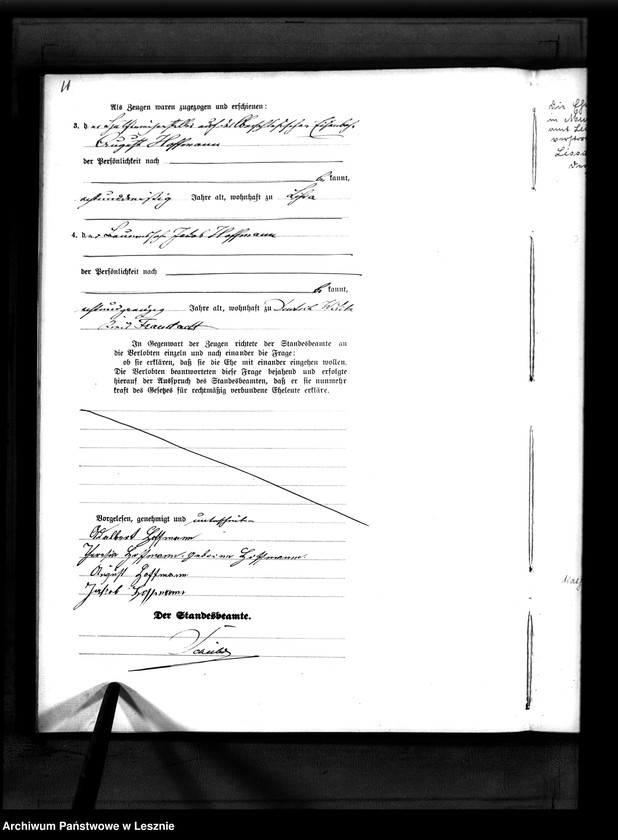 11
Als Zeugen waren zugezogen und erschienen:
3. der auf der Oberschlesischen Eisenbahn
August Hoffmann
der Persönlichkeit nach
be kannt,
achtunddreißig Jahre alt, wohnhaft zu Lissa
4. der Jacob Hoffmann
der Persönlichkeit nach
be kannt,
Jahre alt, wohnhaft zu Deutsch Wilke
Kreis Fraustadt
In Gegenwart der Zeugen richtete der Standesbeamte an
die Verlobten einzeln und nach einander die Frage:
ob sie erklären, daß sie die Ehe mit einander eingehen wollen.
Die Verlobten beantworteten diese Frage bejahend und erfolgte
hierauf der Ausspruch des Standesbeamten, daß er sie nunmehr
kraft des Gesetzes für rechtmäßig verbundene Eheleute erkläre.
Vorgelesen, genehmigt und unterschrieben
Adalbert Hoffmann
Theresia Hoffmann, geborene Hoffmann
August Hoffmann
Jacob Hoffmann
Der Standesbeamte.
Die
in
Lissa
Archiwum Państwowe w Lesznie